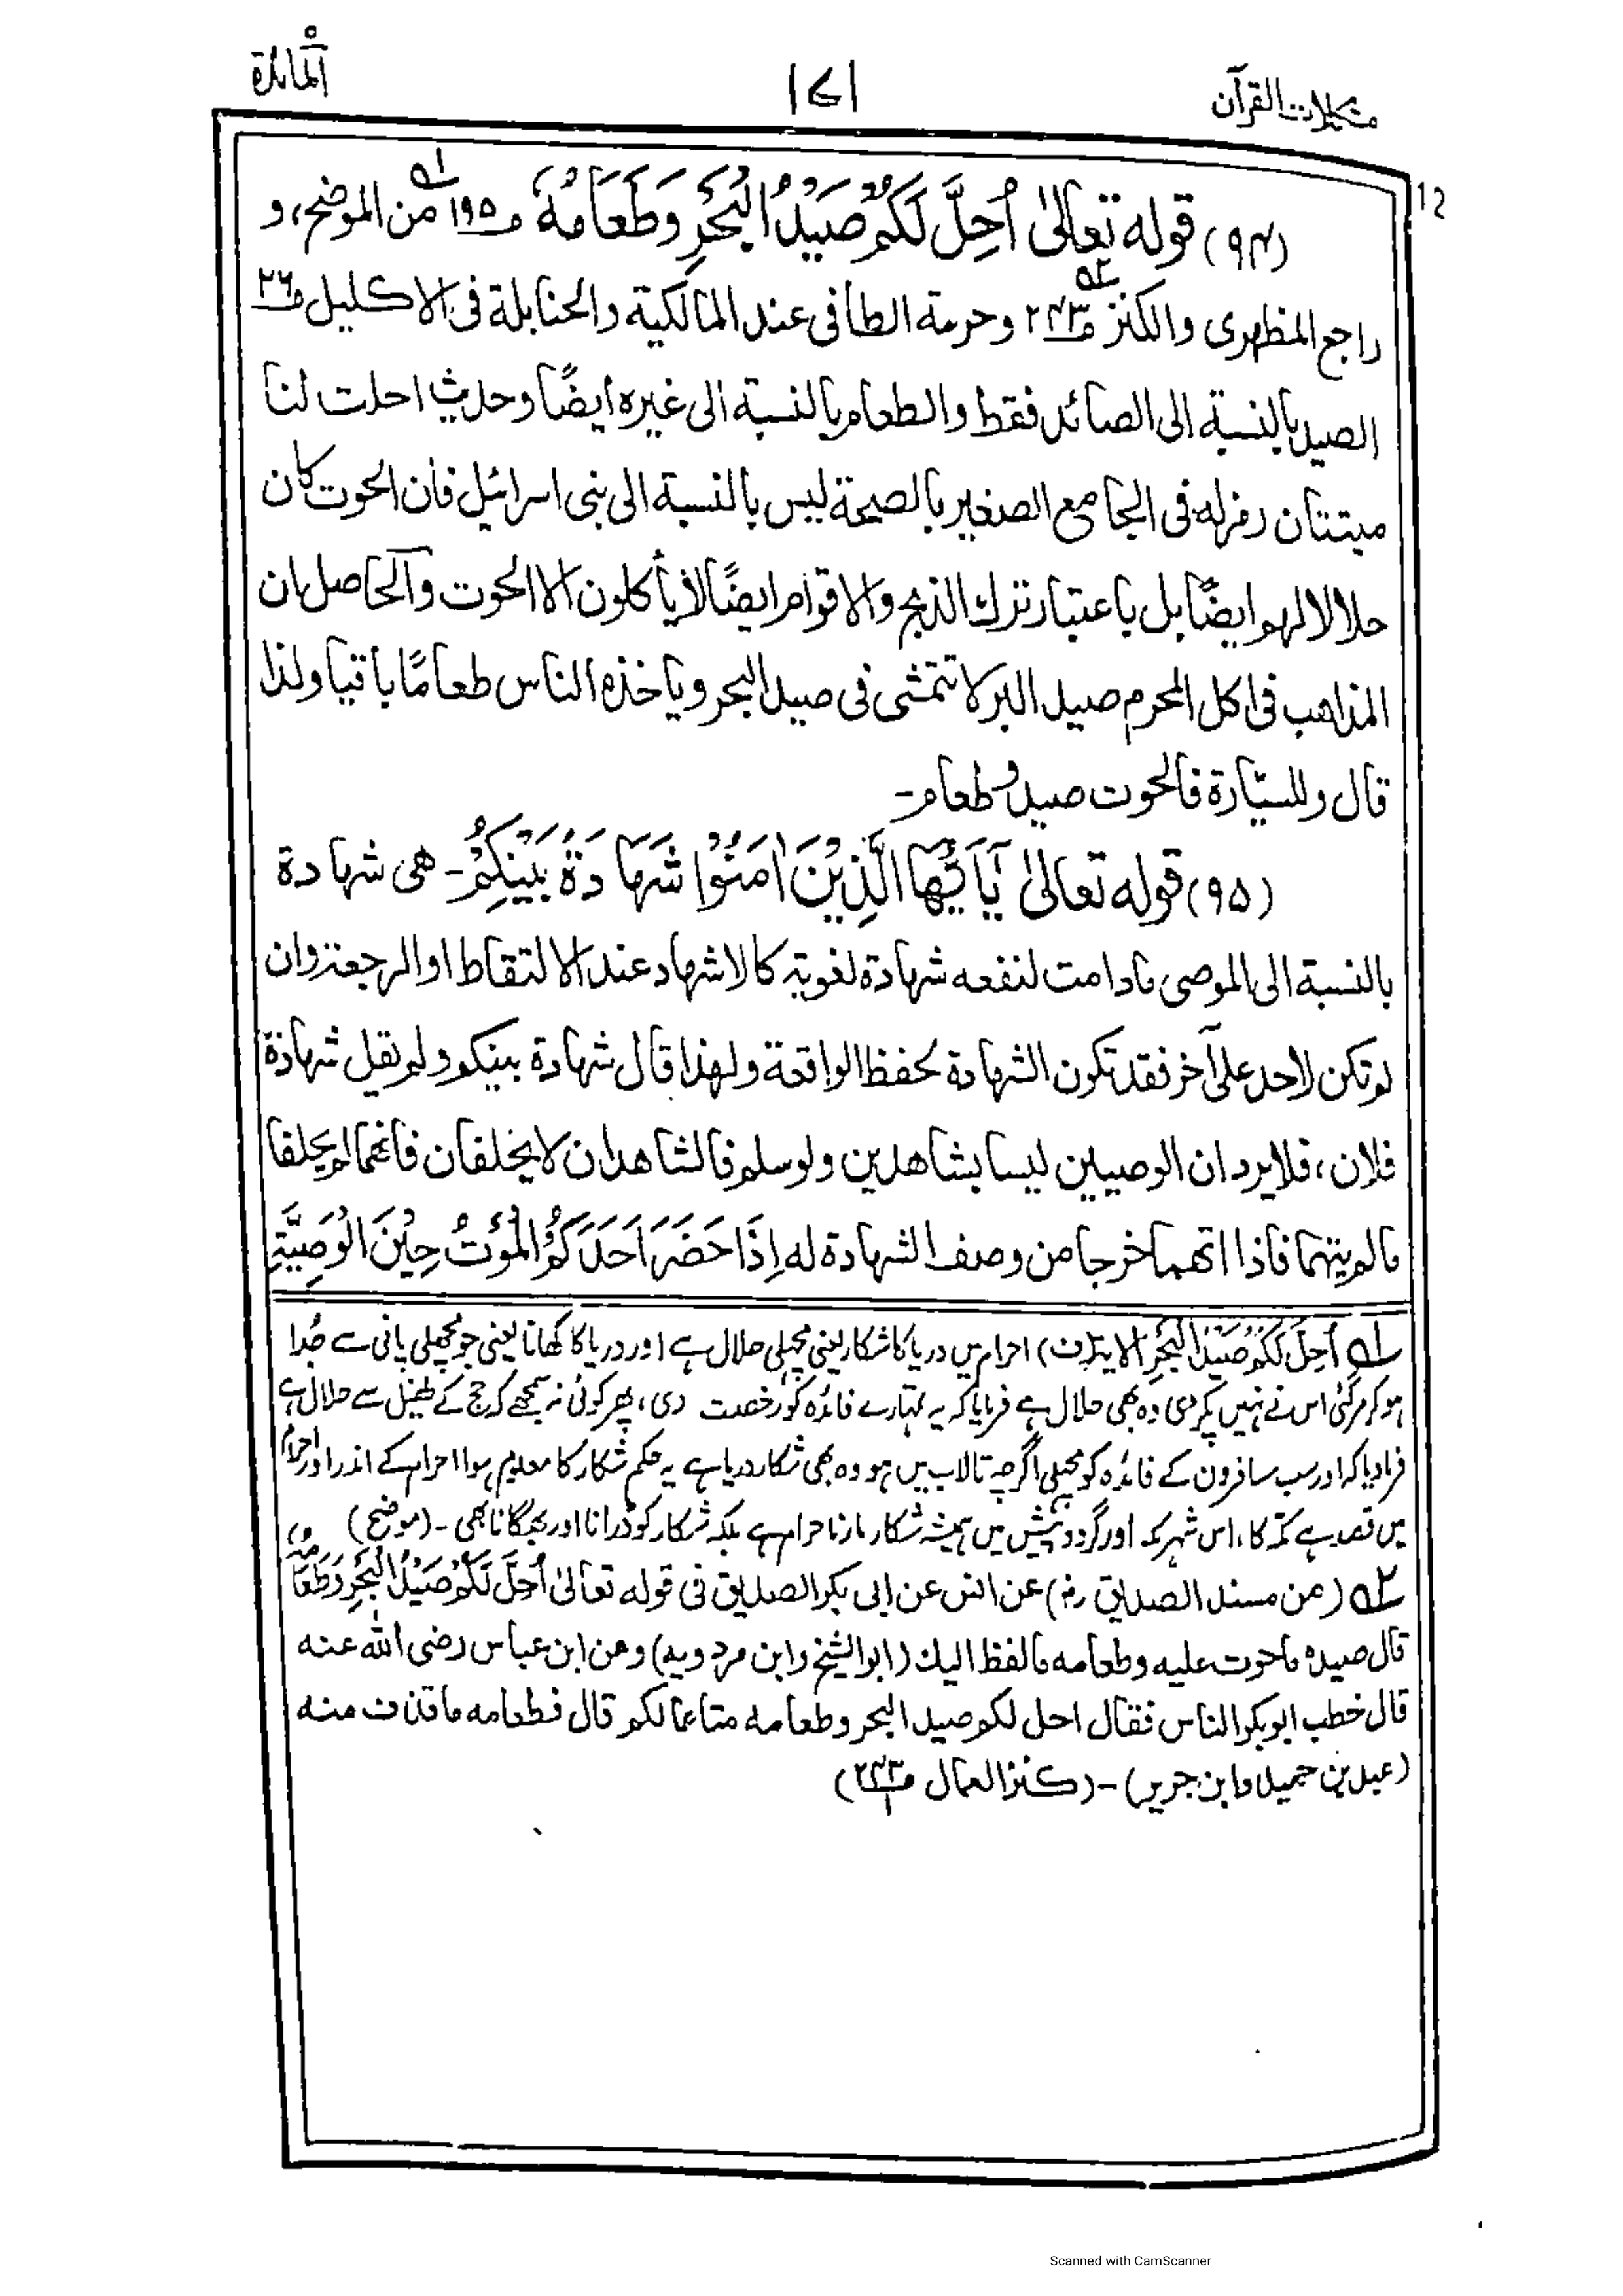 مشکلات القرآن ١٧١ المائدة
12
(٩٤) قوله تعالىٰ اُحِلَّ لَكُمْ صَيْدُ الْبَحْرِ وَطَعَامُهٗ ص١٩٥ من الموضح، و
راجع المظهرى والكنز ص٢٤٣ وحرمة الطافى عند المالكية والحنابلة فى الاكليل ص٣٦
الصيد بالنسبة الى الصائد فقط والطعام بالنسبة الى غيره ايضًا وحديث احلت لنا
ميتتان رمز له فى الجامع الصغير بالصحة ليس بالنسبة الى بنى اسرائيل فان الحوت كان
حلالا لهم ايضًا بل باعتبار ترك الذبح والاقوام ايضًا لا يأكلون الا الحوت وآلحاصل ان
المذاهب فى اكل المحرم صيد البر لا تتمشى فى صيد البحر وياخذه الناس طعامًا باقيا ولذا
قال وللسيّارة فالحوت صيد وطعام-
(٩٥) قوله تعالىٰ يٰٓاَيُّهَا الَّذِيْنَ اٰمَنُوْا شَهَادَةُ بَيْنِكُمْ- هى شهادة
بالنسبة الى الموصى مادامت لنفعه شهادة لغوية كالاشهاد عند الالتقاط او الرجعة وان
لم تكن لاحد على آخر فقد تكون الشهادة لحفظ الواقعة ولهذا قال شهادة بينكم ولم يقل شهادة
فلان، فلا يرد ان الوصيين ليسا بشاهدين ولو سلم فالشاهدان لا يحلفان فانهما لم يحلفا
مالم يتهما فاذا اتهما خرجا من وصف الشهادة له اِذَا حَضَرَ اَحَدَكُمُ الْمَوْتُ حِيْنَ الْوَصِيَّةِ
ا؎ اُحِلَّ لَكُمْ صَيْدُ الْبَحْرِ الاية (ف) احرام میں دریا کا شکار یعنی مچھلی حلال ہے اور دریا کا کھانا یعنی جو مچھلی پانی سے جُدا
ہو کر مر گئی اس نے نہیں پکڑی وہ بھی حلال ہے فرمایا کہ یہ تمہارے فائدہ کو رخصت دی، پھر کوئی نہ سمجھے کہ حج کے طفیل سے حلال ہے
فرمادیا کہ اور سب مسافروں کے فائدہ کو مچھلی اگرچہ تالاب میں ہو وہ بھی شکار دریا ہے یہ حکم شکار کا معلوم ہوا احرام کے اندر اور احرام
میں قصد ہے مکہ کا، اس شہر مکہ اور گردوپیش میں ہمیشہ شکار مارنا حرام ہے بلکہ شکار کو ڈرانا اور بھگانا بھی - (موضح)
٢؎ (من مسند الصديق رض) عن انس عن ابى بكر الصديق فى قوله تعالىٰ اُحِلَّ لَكُمْ صَيْدُ الْبَحْرِ وَطَعَامُهٗ
قال صيده ماحوت عليه وطعامه مالفظ اليك (ابو الشيخ وابن مردويه) وعن ابن عباس رضى الله عنه
قال خطب ابو بكر الناس فقال احل لكم صيد البحر وطعامه متاعا لكم قال فطعامه ما قذف منه
(عبد بن حميد وابن جرير) - (كنز العمال ص٢٤٣)
Scanned with CamScanner